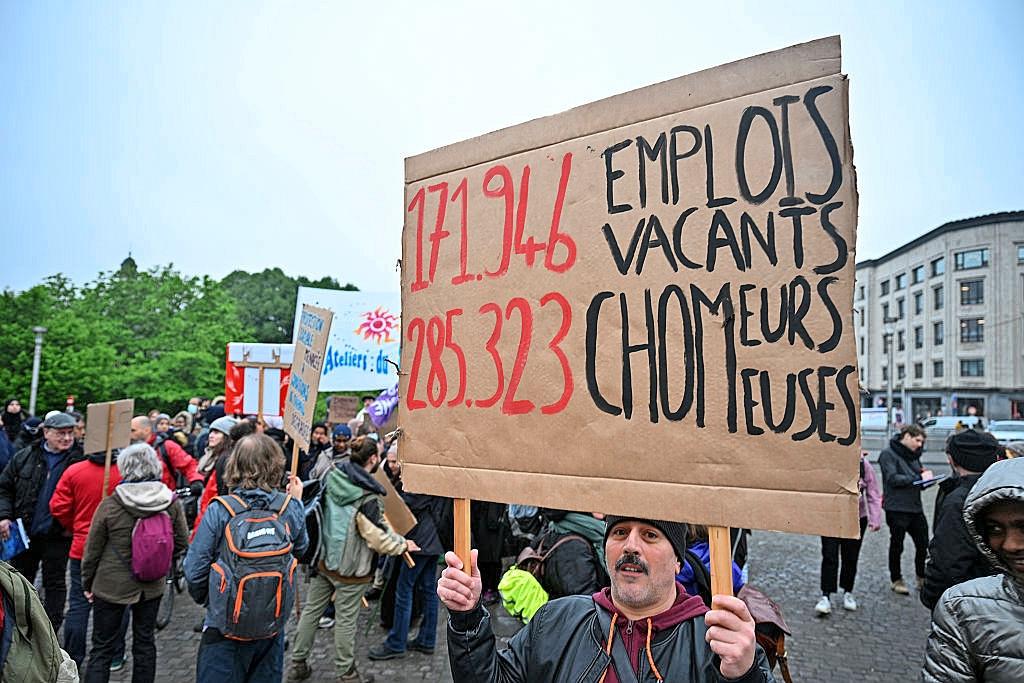 171.946 EMPLOIS
VACANTS
285.323 CHOMEURS
EUSES
Ateliers du